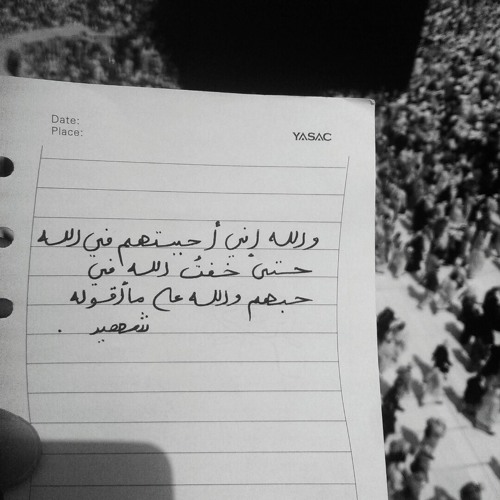 Date:
Place:
YASAC
والله إني أحببتهم في الله
حتىٰ خفتُ الله في
حبهم والله على ما أقوله
شهيد .